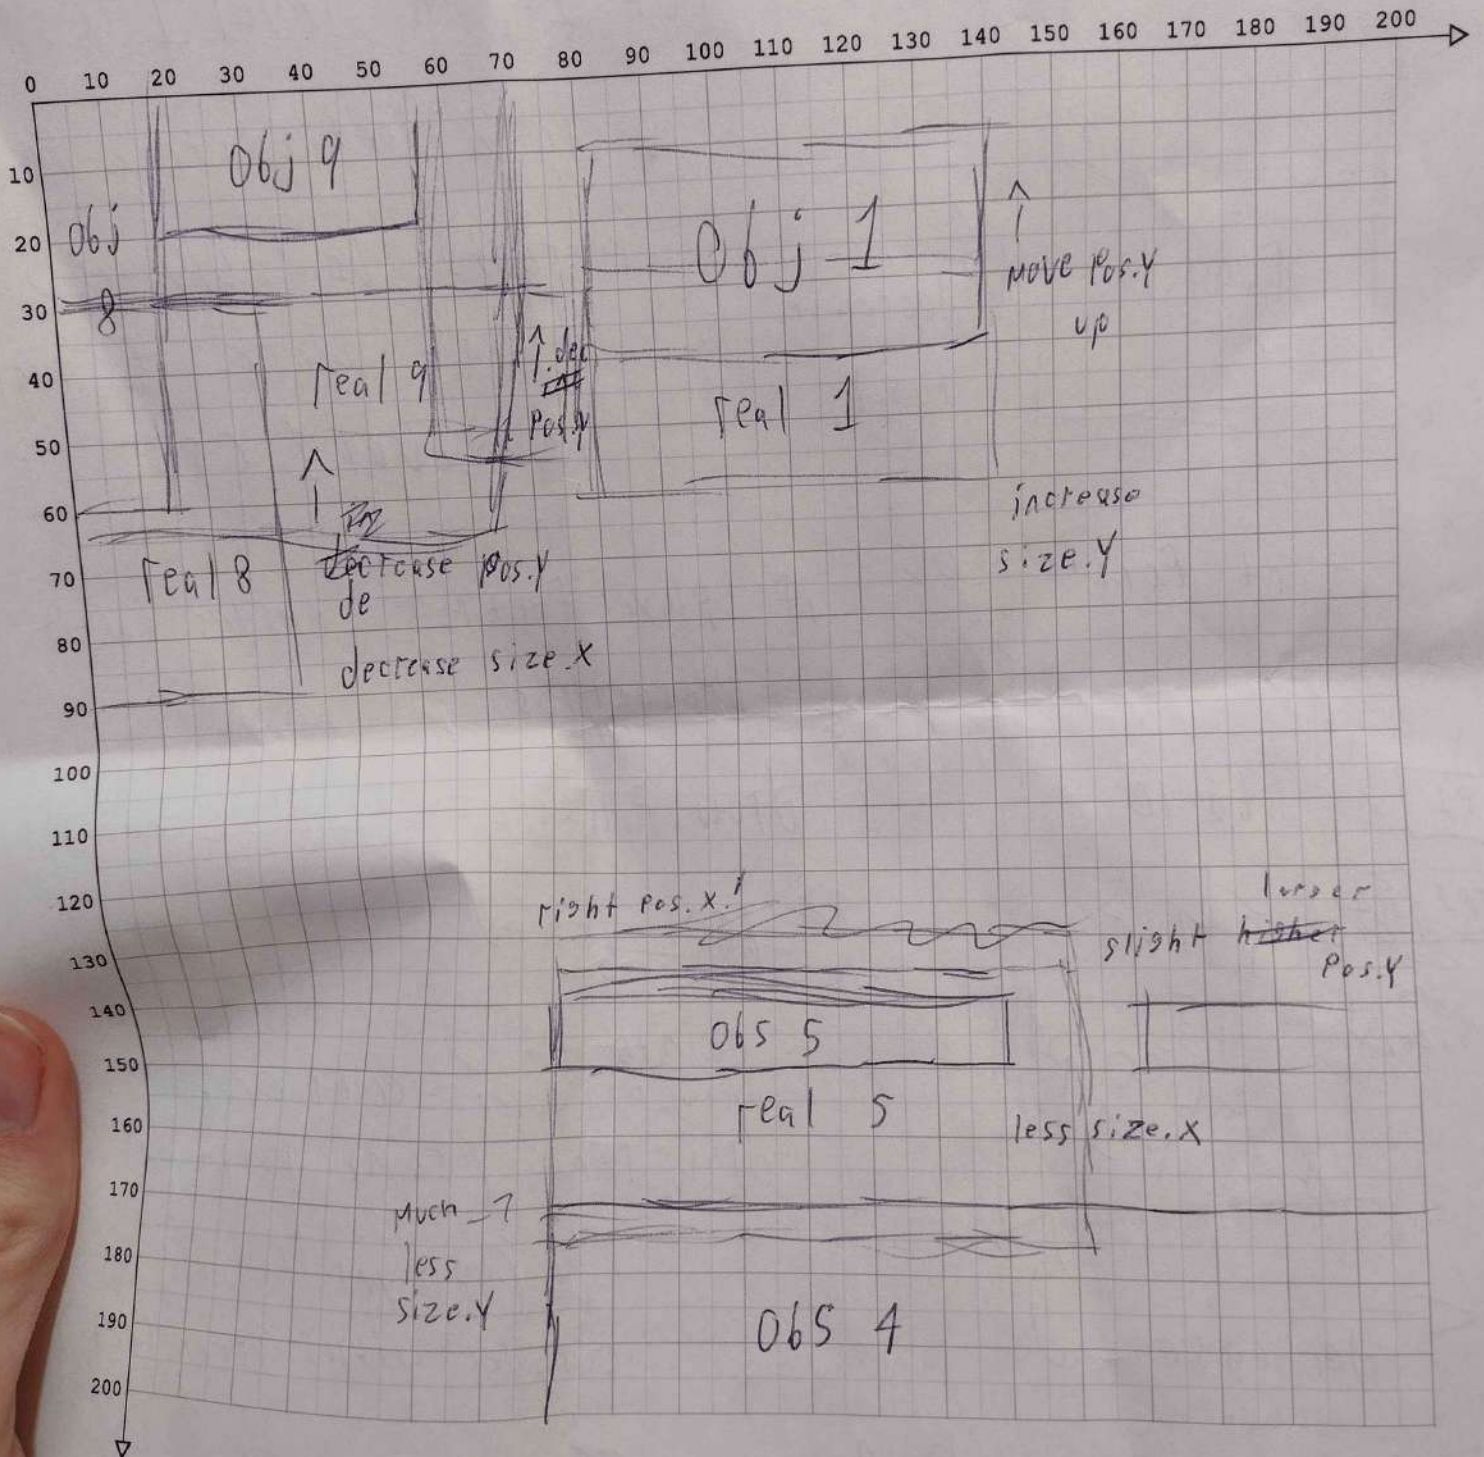 0 10 20 30 40 50 60 70 80 90 100 110 120 130 140 150 160 170 180 190 200
10
20
30
40
50
60
70
80
90
100
110
120
130
140
150
160
170
180
190
200
obj 9
obj
8
real 9
dec
pos.y
obj 1
real 1
move pos.y
up
increase
size.y
real 8
decrease pos.y
de
decrease size.x
right pos.x!
slight higher
larger
pos.y
obs 5
real 5
less size.x
much
less
size.y
obs 4